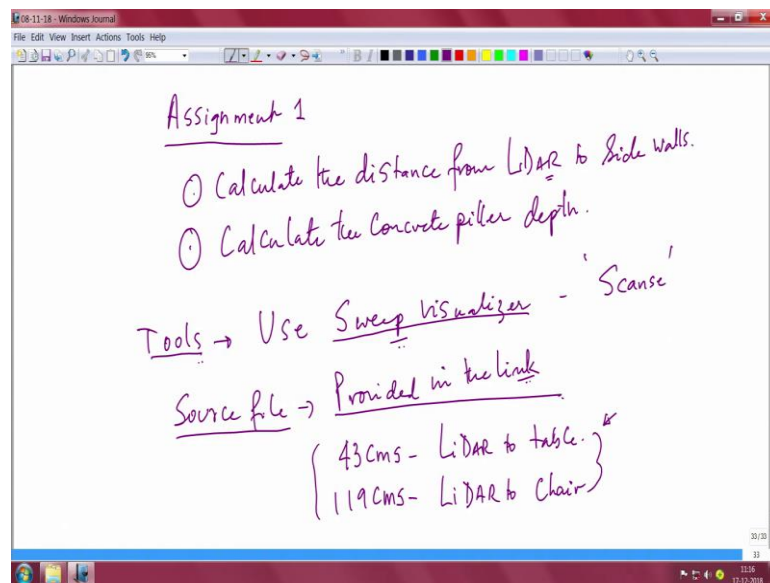 08-11-18 - Windows Journal
File Edit View Insert Actions Tools Help
96%
B I
Assignment 1
Calculate the distance from LiDAR to Side walls.
Calculate the Concrete piller depth.
Tools → Use Sweep Visualizer - 'Scanse'
Source file → Provided in the link
43 Cms - LiDAR to table.
119 Cms - LiDAR to Chair
33/33
33
11:16
17-12-2018